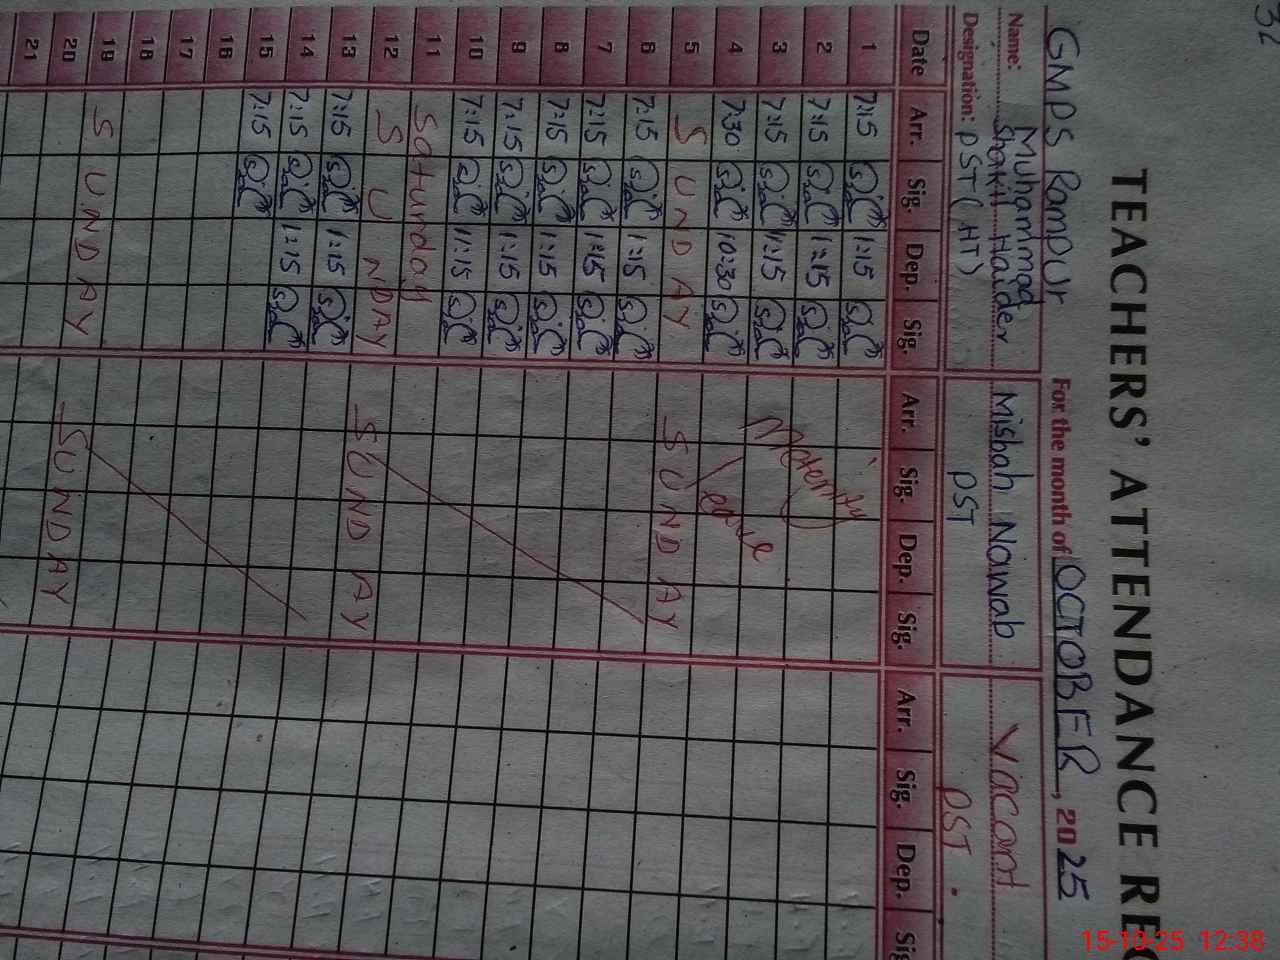 32
TEACHERS' ATTENDANCE RE
GMPS Rampur For the month of OCTOBER, 2025
Name: Muhammad Shakil Haider Misbah Nawab Vacant
Designation: PST (HT) PST PST.
Date Arr. Sig. Dep. Sig. Arr. Sig. Dep. Sig. Arr. Sig. Dep. Sig
1 7:15 1:15
2 7:15 1:15
3 7:15 11:15
4 7:30 10:30
Maternity
Leave
5 SUNDAY SUNDAY
6 7:15 1:15
7 7:15 1:15
8 7:15 1:15
9 7:15 1:15
10 7:15 11:15
11 Saturday
12 SUNDAY SUNDAY
13 7:15 1:15
14 7:15 1:15
15 7:15
16
17
18
19 SUNDAY SUNDAY
20
21
15-10-25 12:38